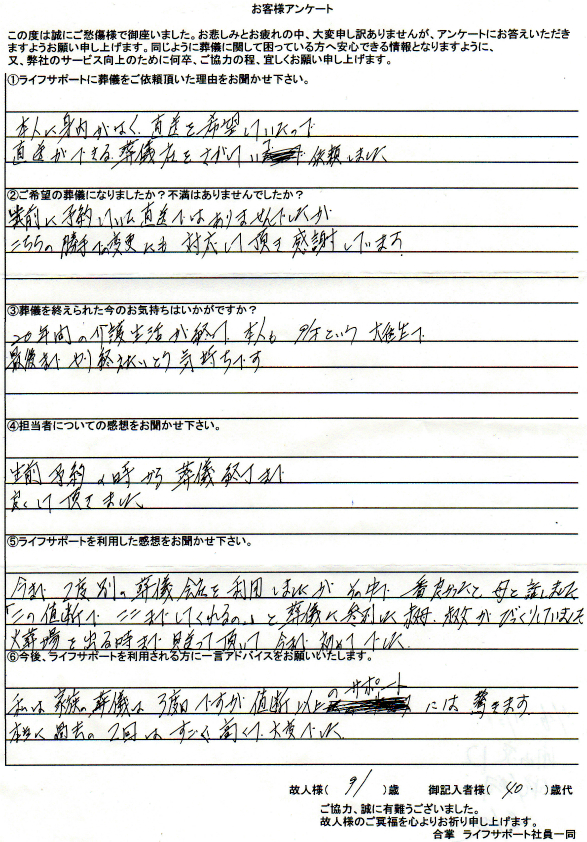 お客様アンケート
この度は誠にご愁傷様で御座いました。お悲しみとお疲れの中、大変申し訳ありませんが、アンケートにお答えいただき
ますようお願い申し上げます。同じように葬儀に関して困っている方へ安心できる情報となりますように、
又、弊社のサービス向上のために何卒、ご協力の程、宜しくお願い申し上げます。
①ライフサポートに葬儀をご依頼頂いた理由をお聞かせ下さい。
本人に身内がなく、直送を希望していたので
直送ができる葬儀社をさがしていて 依頼しました
②ご希望の葬儀になりましたか？不満はありませんでしたか？
生前に予約していた直送ではありませんでしたが
こちらの勝手な変更にも 対応して頂き感謝しています
③葬儀を終えられた今のお気持ちはいかがですか？
20年間の介護生活が終って 本人も 91才という 大往生で
最後まで やり終えたという気持ちです
④担当者についての感想をお聞かせ下さい。
生前予約の時から 葬儀終了まで
良くして頂きました
⑤ライフサポートを利用した感想をお聞かせ下さい。
今まで 2度別の葬儀会社を利用しましたが その中で 一番良かったと 母と話しました
「この値断で ここまでしてくれるの。」と葬儀に参列した 叔母、叔父が びっくりしていました
火葬場を出る時まで 見送って頂いて 今まで 初めてでした。
⑥今後、ライフサポートを利用される方に一言アドバイスをお願いいたします。
私は 家族葬儀は 3度目ですが 値断以上のサポートには 驚きます
本当に 過去の2回は すごく高くて 大変でした
故人様( 91 )歳 御記入者様( 40 )歳代
ご協力、誠に有難うございました。
故人様のご冥福を心よりお祈り申し上げます。
合掌 ライフサポート社員一同